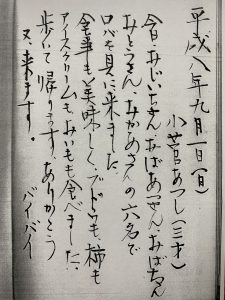 平成八年九月一日(日)
小菅あつし(三才)
今日、おじいちゃん、おばあちゃん、おばちゃん
おとうさん、おかあさんの六名で
ロバを見に来ました。
食事も美味しく、ブドウも、柿も
アイスクリームも、おいもも食べました。
歩いて帰ります。ありがとう
又、来ます。バイバイ